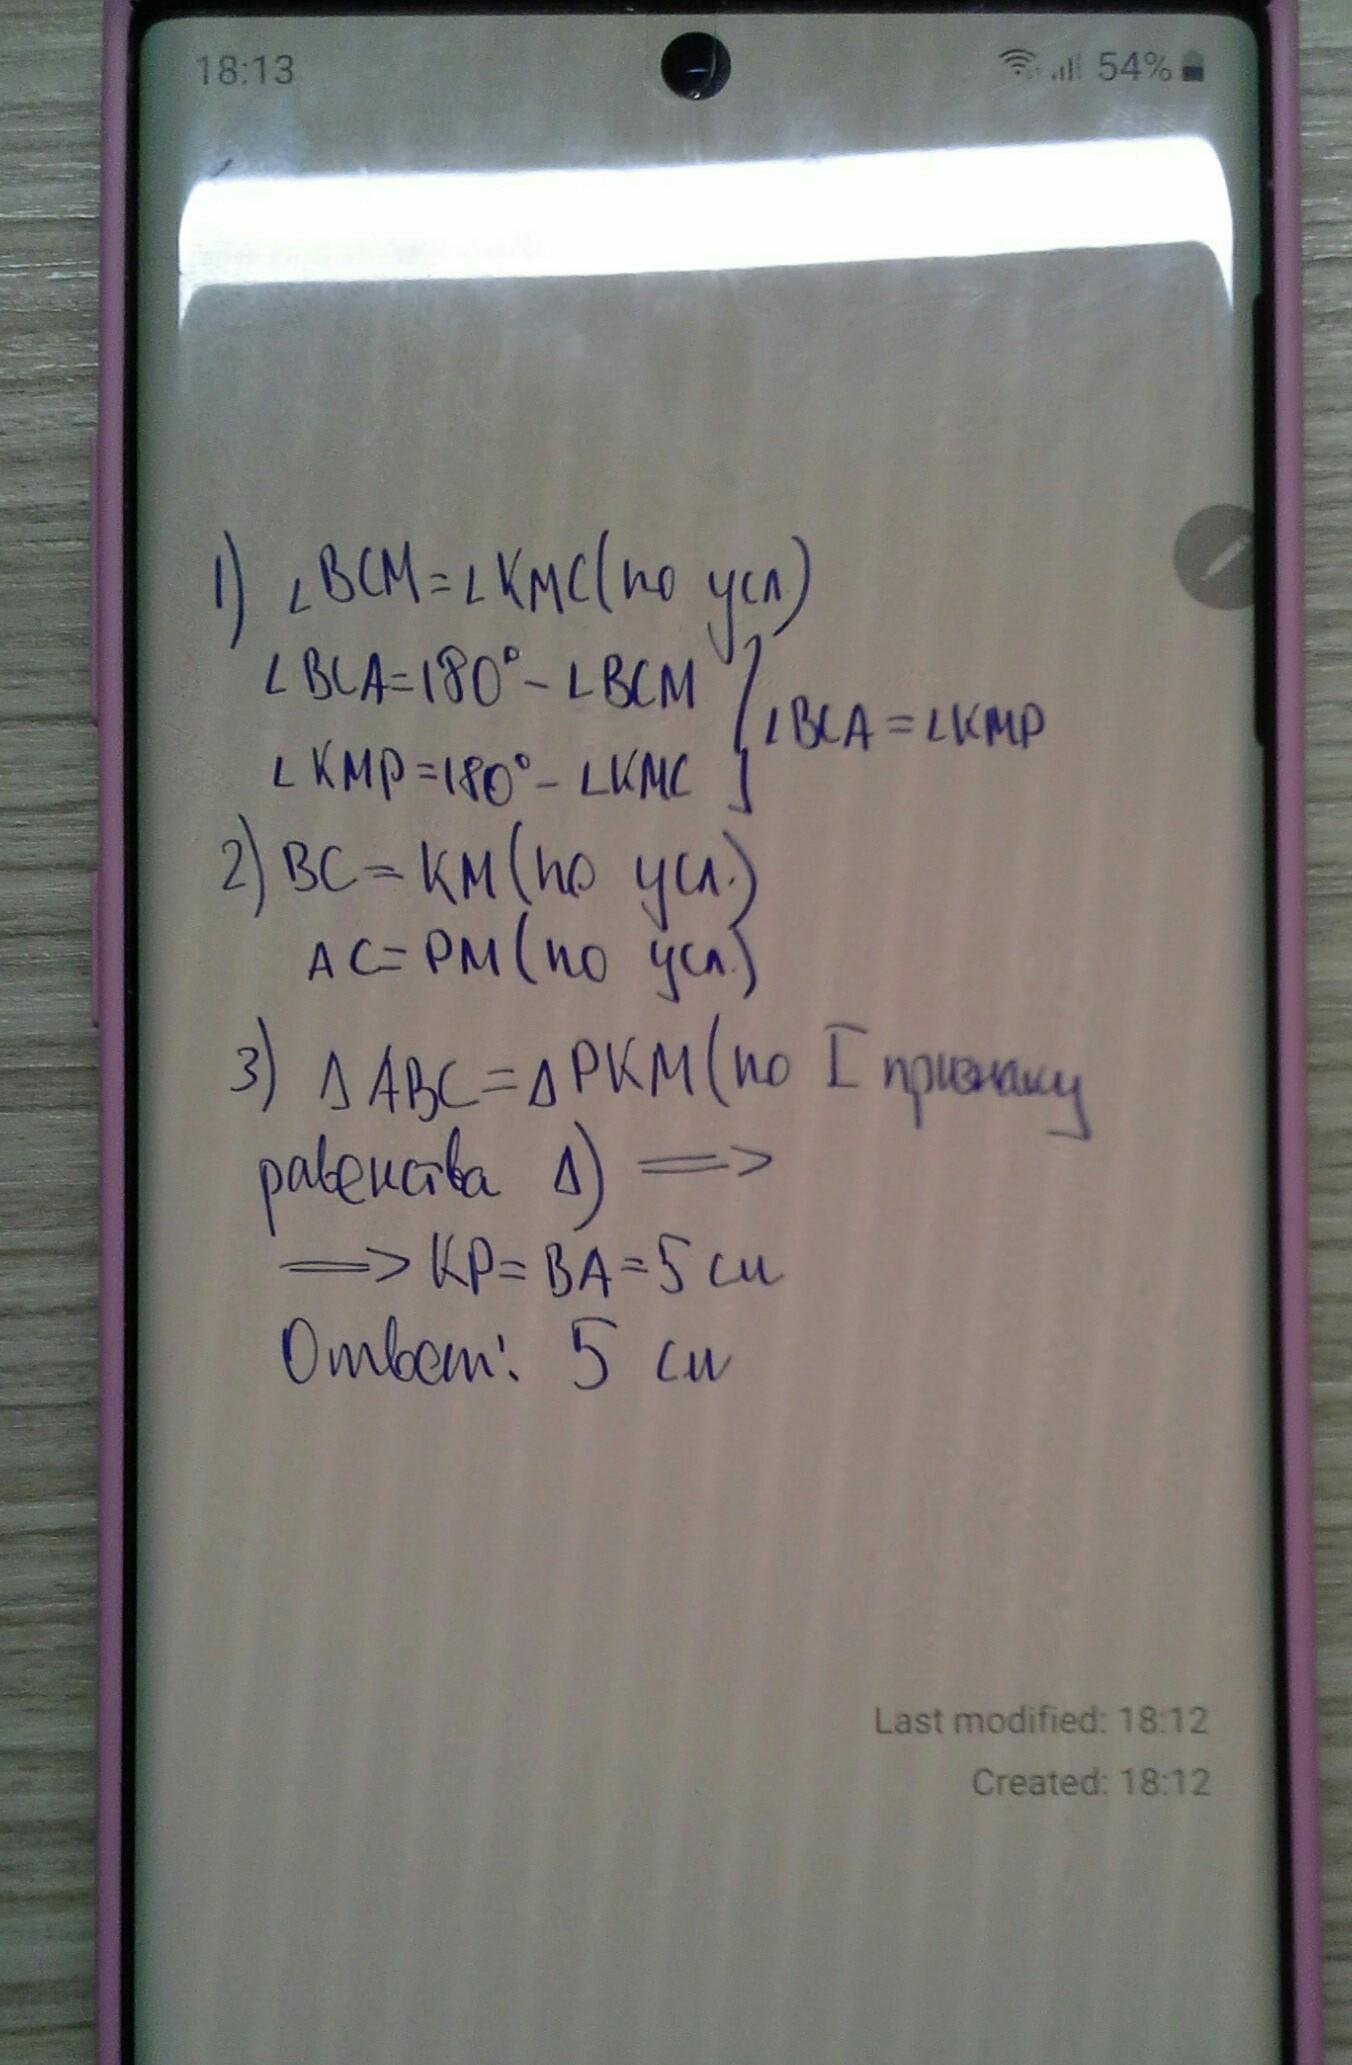 18:13 54%
1) ∠BCM=∠KMC(по усл)
∠BCA=180°-∠BCM
∠KMP=180°-∠KMC } ∠BCA=∠KMP
2) BC=KM(по усл.)
AC=PM(по усл.)
3) Δ ABC=Δ PKM(по I признаку
равенства Δ) =>
=> KP=BA=5 см
Ответ: 5 см
Last modified: 18:12
Created: 18:12